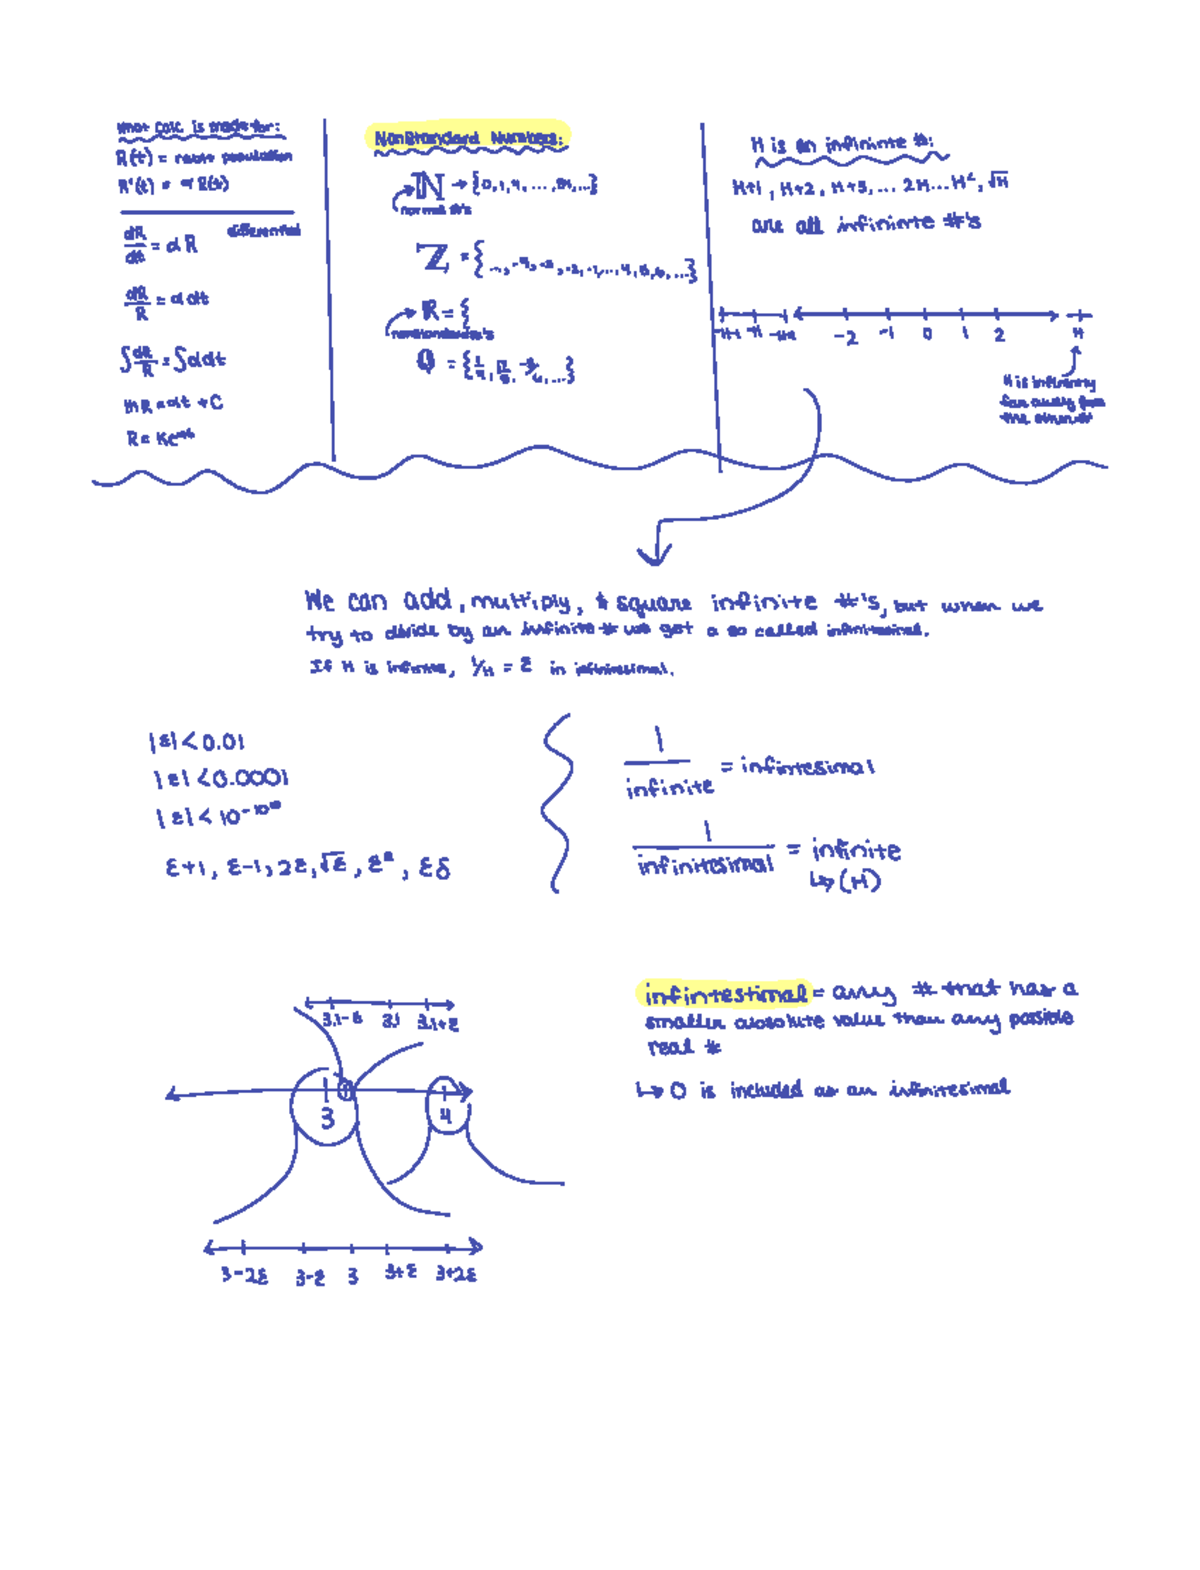 What calc. is made for:
R(t) = population
R'(t) = α R(t)
dR/dt = α R
differential
dR/R = α dt
∫ dR/R = ∫ α dt
ln R = αt + C
R = Ke^αt
NonStandard Numbers:
ℕ → {0, 1, ..., ...}
normal #'s
ℤ = {
ℝ = {
#'s
ℚ = {
H is an infininte #:
H+1, H+2, H+3, ... 2H ... H², √H
are all infininte #'s
-2 -1 0 1 2 H
H is infinitely
far away from
the other #
We can add, multiply, & square infinite #'s, but when we
try to divide by an infinite # we get a so called infinitesimal.
If H is infinite, 1/H = ε in infinitesimal.
|ε| < 0.01
|ε| < 0.0001
|ε| < 10
ε+1, ε-1, 2ε, √ε, ε², εδ
1/infinite = infintesimal
1/infinitesimal = infinite
↳ (H)
3.1-ε 3.1 3.1+ε
3 4
3-2ε 3-ε 3 3+ε 3+2ε
infintestimal = any # that has a
smaller absolute value than any possible
real #
↳ 0 is included as an infinitesimal